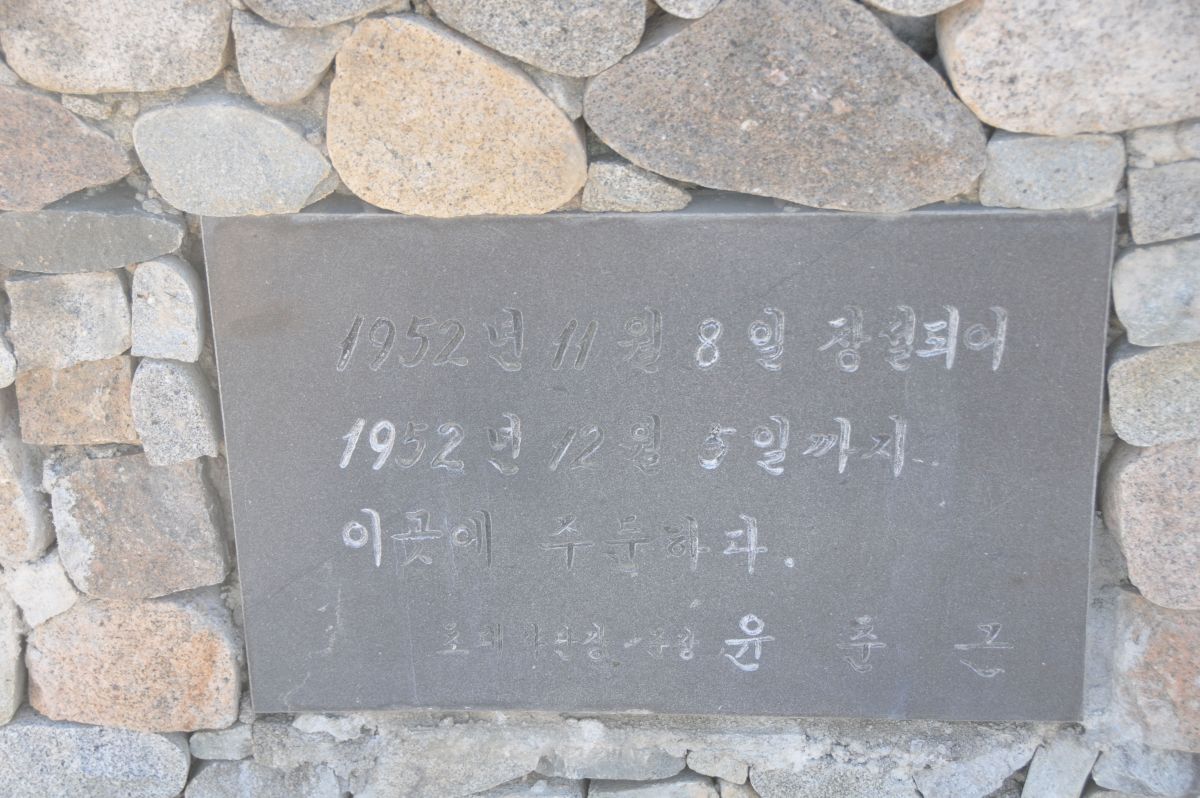 1952년 11월 8일 창설되어
1952년 12월 5일까지
이곳에 주둔하다.
초대사단장 소장 윤 춘 근